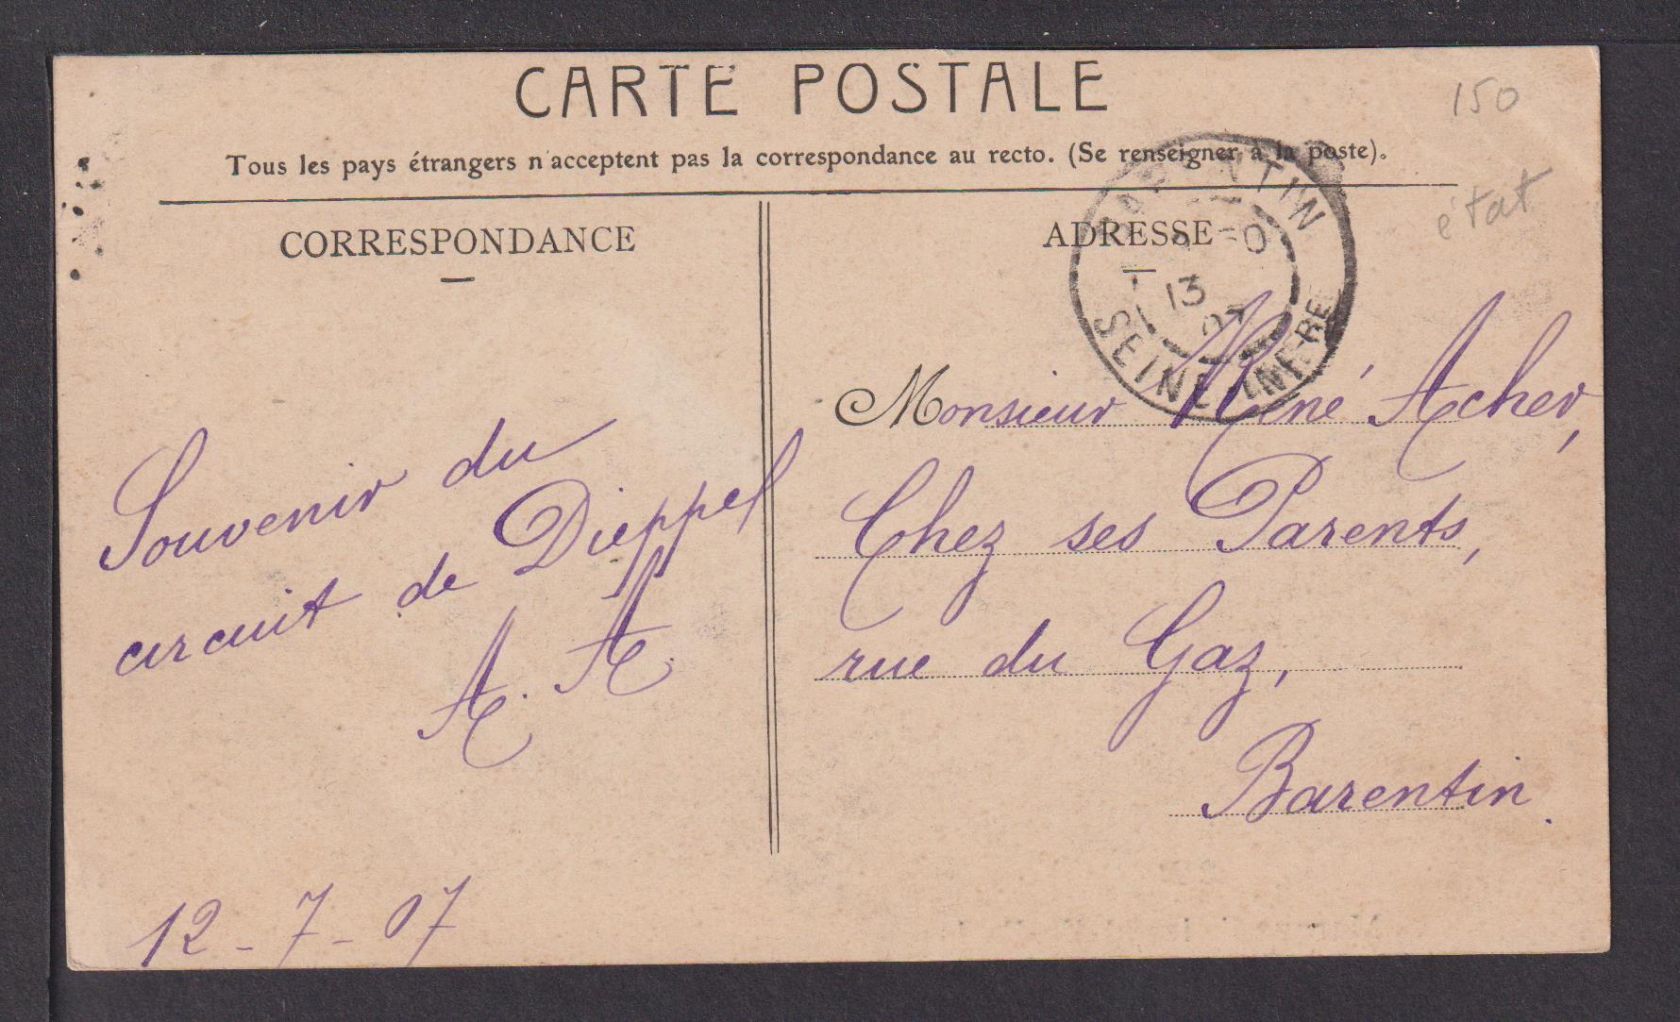 CARTE POSTALE
Tous les pays étrangers n'acceptent pas la correspondance au recto. (Se renseigner à la poste).
150
état
CORRESPONDANCE
Souvenir du
circuit de Dieppe
A. A.
12-7-07
ADRESSE
BARENTIN
13
07
SEINE INFRE
Monsieur René Acher,
Chez ses Parents,
rue du Gaz,
Barentin.